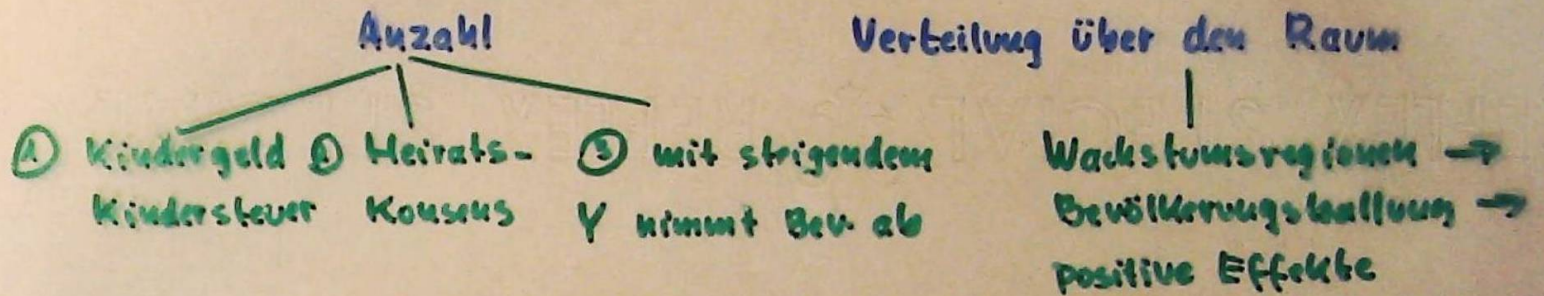 Anzahl
Verteilung über den Raum
① Kindergeld ② Heirats-
Kindersteuer Konsens
③ mit strigendem
Y nimmt Bev. ab
Wachstumsregionen →
Bevölkerungsballung →
positive Effekte